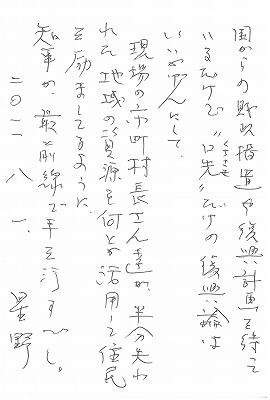 国からの財政措置や復興計画を待って
いるだけで〝口先〟だけの復興論は
いいかげんにして、
現場の市町村長さん達が、半分失わ
れた地域の資源を何とか活用して住民
を励ましてるように、
知事が、最前線で手を汚すべし。
二〇一一 八 一、
星野